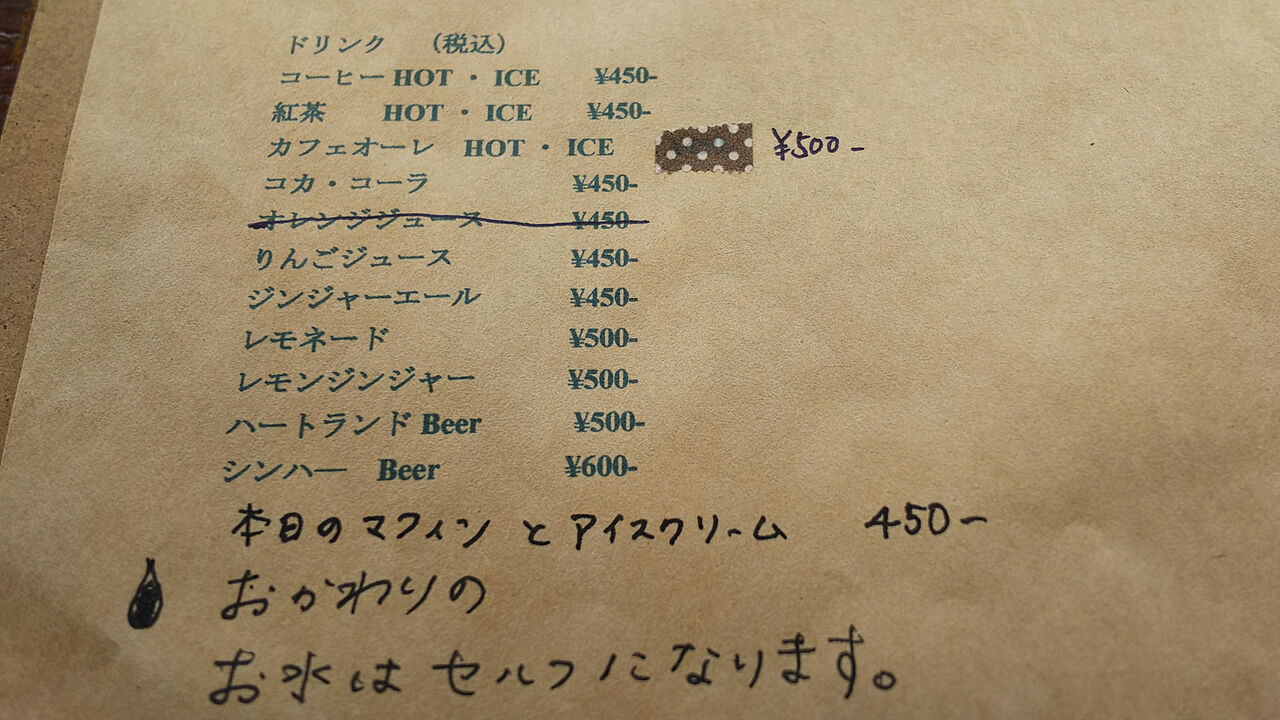 ドリンク （税込）
コーヒー HOT ・ ICE ¥450-
紅茶 HOT ・ ICE ¥450-
カフェオーレ HOT ・ ICE ¥500-
コカ・コーラ ¥450-
オレンジジュース ¥450-
りんごジュース ¥450-
ジンジャーエール ¥450-
レモネード ¥500-
レモンジンジャー ¥500-
ハートランド Beer ¥500-
シンハー Beer ¥600-
本日のマフィンとアイスクリーム 450-
おかわりの
お水はセルフになります。